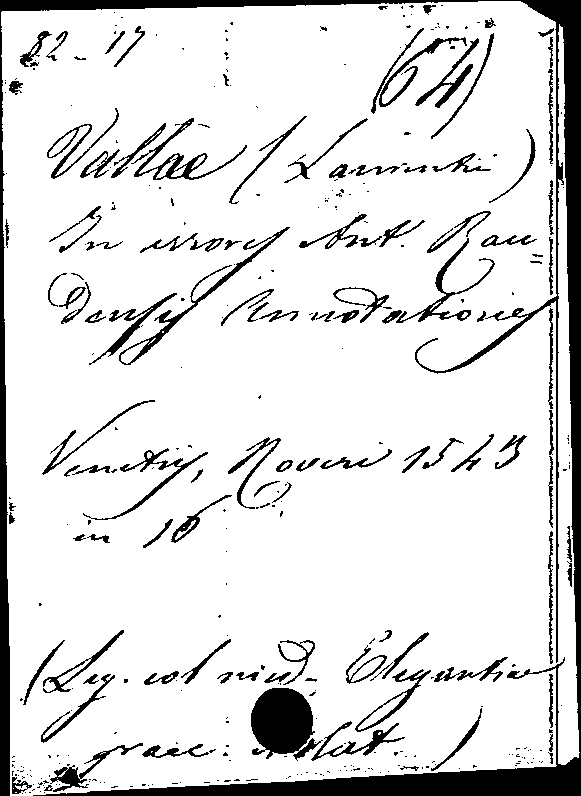 82-17
(64)
Vallae (Laurentii)
In errores Ant. Rau=
densis Annotationes
Venetiis, Roveri 1543
in 16
(Leg. col med. Elegantiae
graec. lat.)